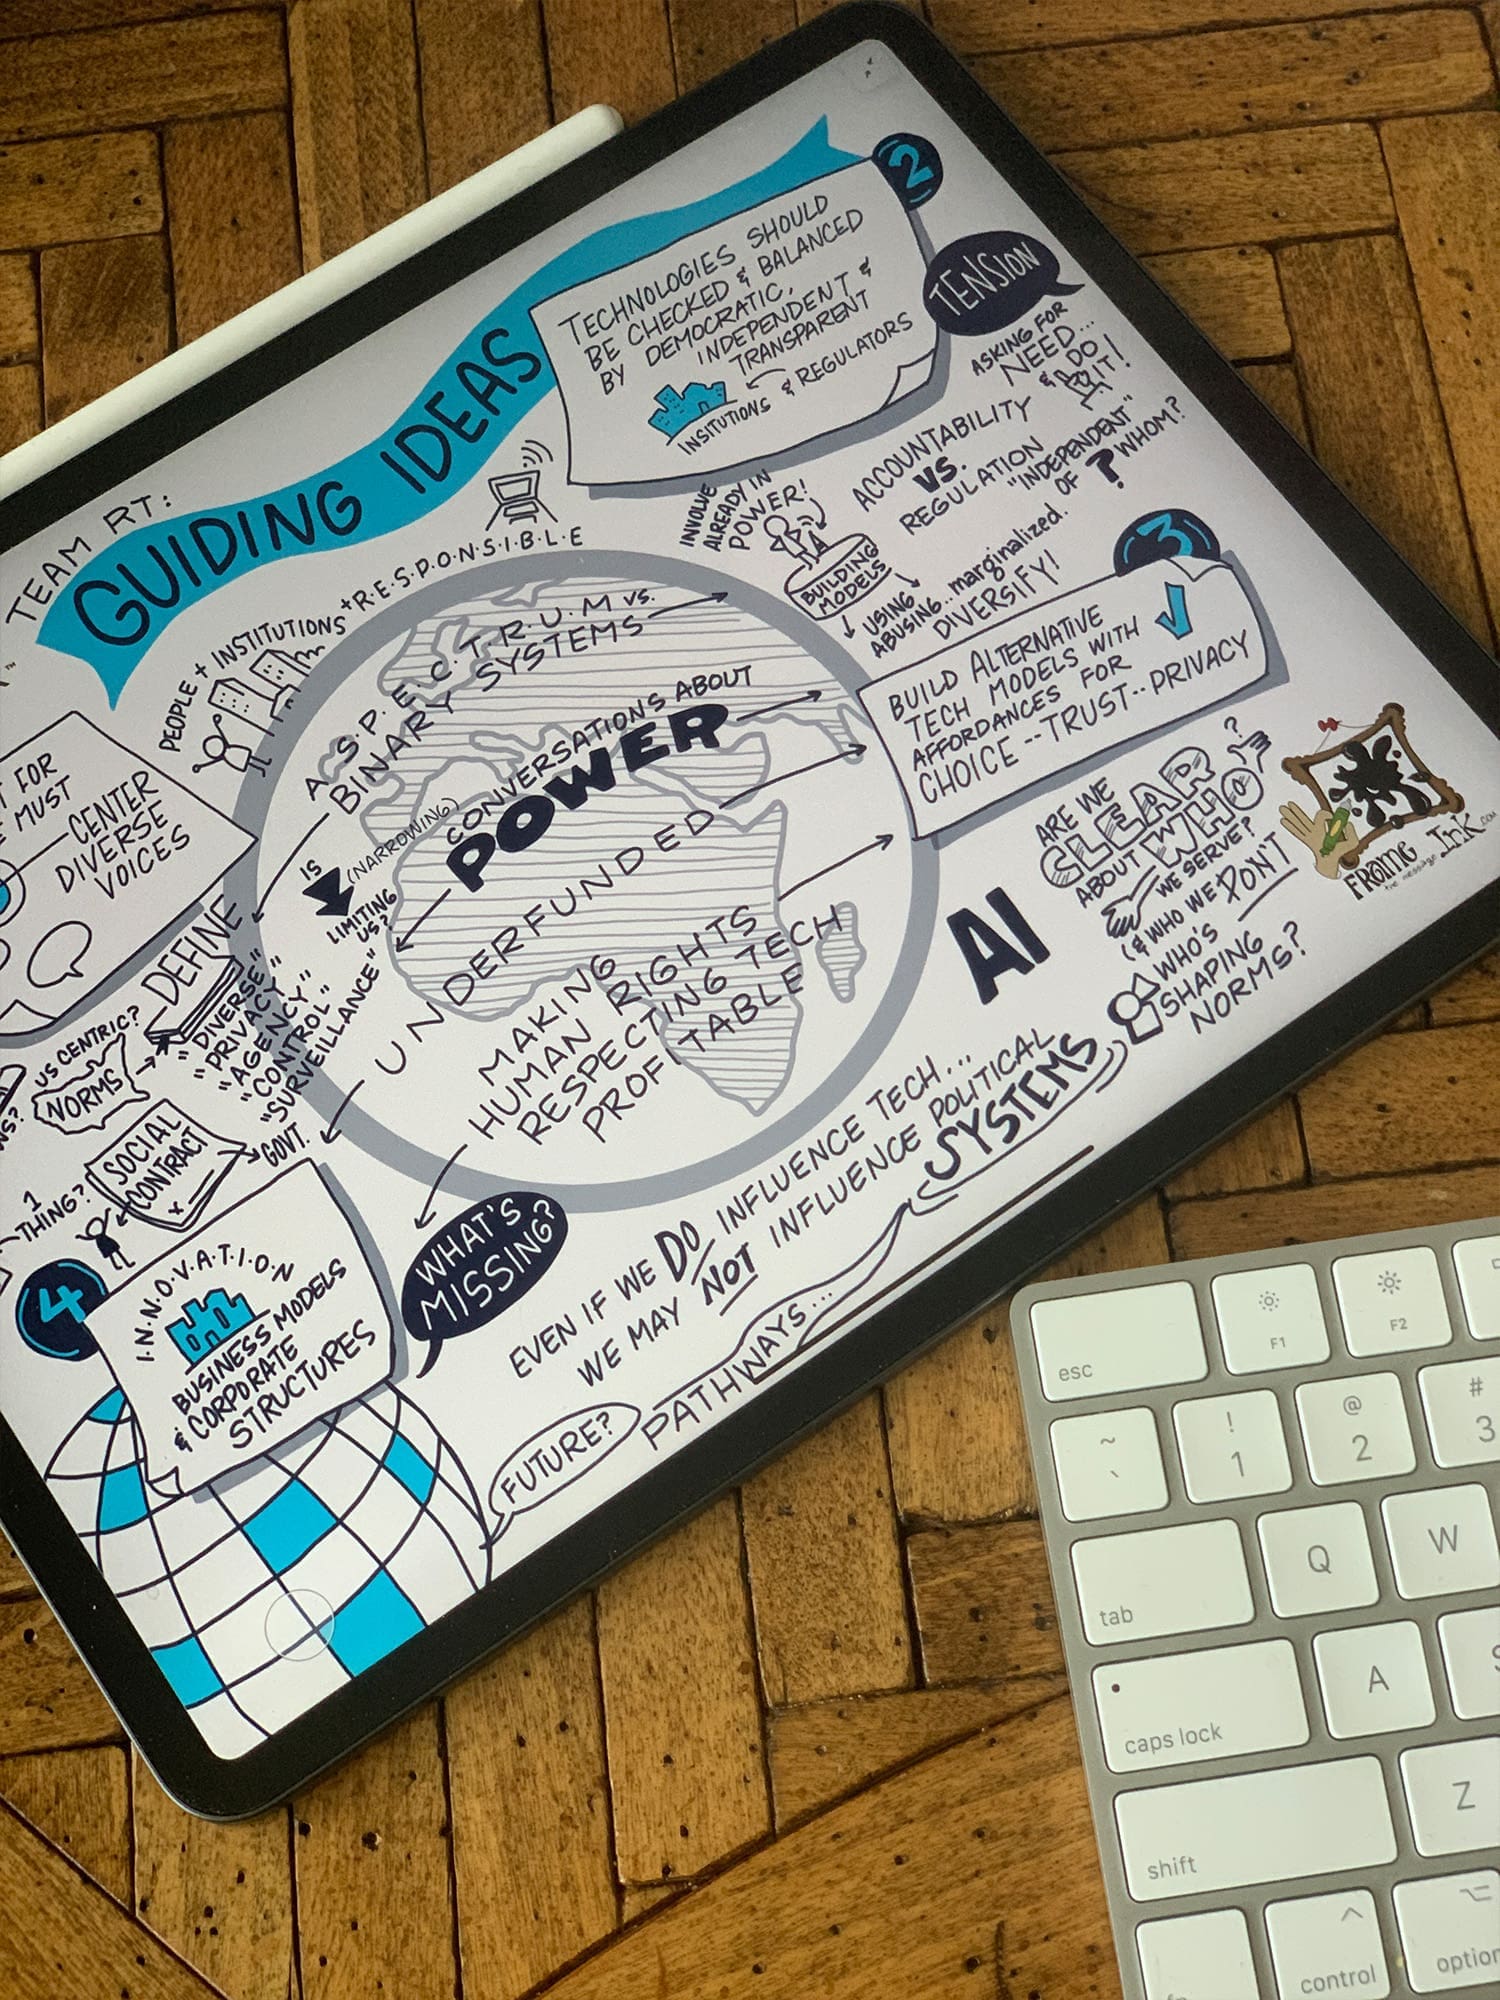 TEAM RT:
GUIDING IDEAS
2
TECHNOLOGIES SHOULD
BE CHECKED & BALANCED
BY DEMOCRATIC,
INDEPENDENT &
TRANSPARENT
INSITUTIONS & REGULATORS
TENSION
ASKING FOR
NEED...
& DO
IT!
ACCOUNTABILITY
VS.
REGULATION
"INDEPENDENT"
OF ? WHOM?
INVOLVE
ALREADY IN
POWER!
BUILDING
MODELS
USING
ABUSING...marginalized.
DIVERSIFY!
3
BUILD ALTERNATIVE
TECH MODELS WITH
AFFORDANCES FOR
CHOICE -- TRUST -- PRIVACY
PEOPLE + INSTITUTIONS + R·E·S·P·O·N·S·I·B·L·E
T FOR
MUST
CENTER
DIVERSE
VOICES
A S.P.E.C.T.R.U.M VS.
BINARY SYSTEMS
IS
(NARROWING)
LIMITING
US?
CONVERSATIONS ABOUT
POWER
UNDERFUNDED
MAKING
HUMAN RIGHTS
RESPECTING TECH
PROFITABLE
DEFINE
"DIVERSE"
"PRIVACY"
"AGENCY"
"CONTROL"
"SURVEILLANCE"
US CENTRIC?
NORMS
SOCIAL
CONTRACT
x
GOVT.
1
THING?
4
I·N·N·O·V·A·T·I·O·N
BUSINESS MODELS
& CORPORATE
STRUCTURES
WHAT'S
MISSING?
AI
ARE WE
CLEAR
ABOUT WHO?
WE SERVE?
(& WHO WE DON'T
WHO'S
SHAPING
NORMS?
EVEN IF WE DO INFLUENCE TECH...
WE MAY NOT INFLUENCE POLITICAL
SYSTEMS
FUTURE?
PATHWAYS...
FRAME
the message
INK
.com
esc
F1
F2
~
`
!
1
@
2
#
3
tab
Q
W
caps lock
A
S
shift
Z
fn
control
option